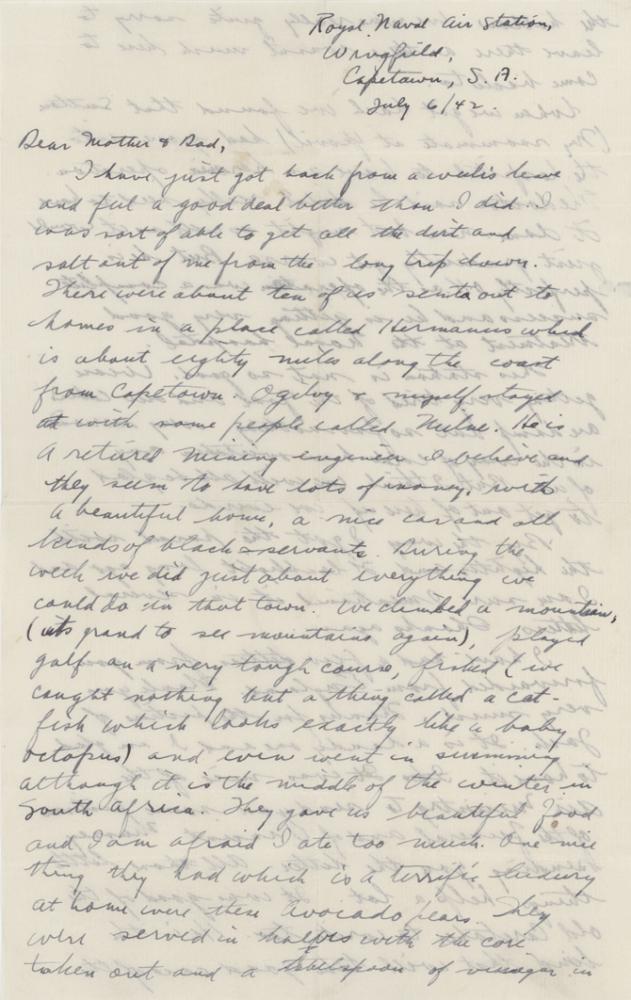 Royal Naval Air Station,
Wingfield,
Capetown, S.A.
July 6/42.
Dear Mother & Dad,
I have just got back from a weeks leave
and feel a good deal better than I did. I
was sort of able to get all the dirt and
salt out of me from the long trip down.
There were about ten of us sent out to
homes in a place called Hermanus which
is about eighty miles along the coast
from Capetown. Ogilvy & myself stayed
at with some people called Milne. He is
a retired mining engineer I believe and
they seem to have lots of money, with
a beautiful home, a nice car and all
kinds of black servants. During the
week we did just about everything we
could do in that town. We climbed a mountain,
(its grand to see mountains again), played
golf on a very tough course, fished (we
caught nothing but a thing called a cat-
fish which looks exactly like a baby
octopus) and even went in swimming
although it is the middle of the winter in
South Africa. They gave us beautiful food
and I am afraid I ate too much. One nice
thing they had which is a terrific luxury
at home were these avocado pears. They
were served in halves with the core
taken out and a tablespoon of vinegar in